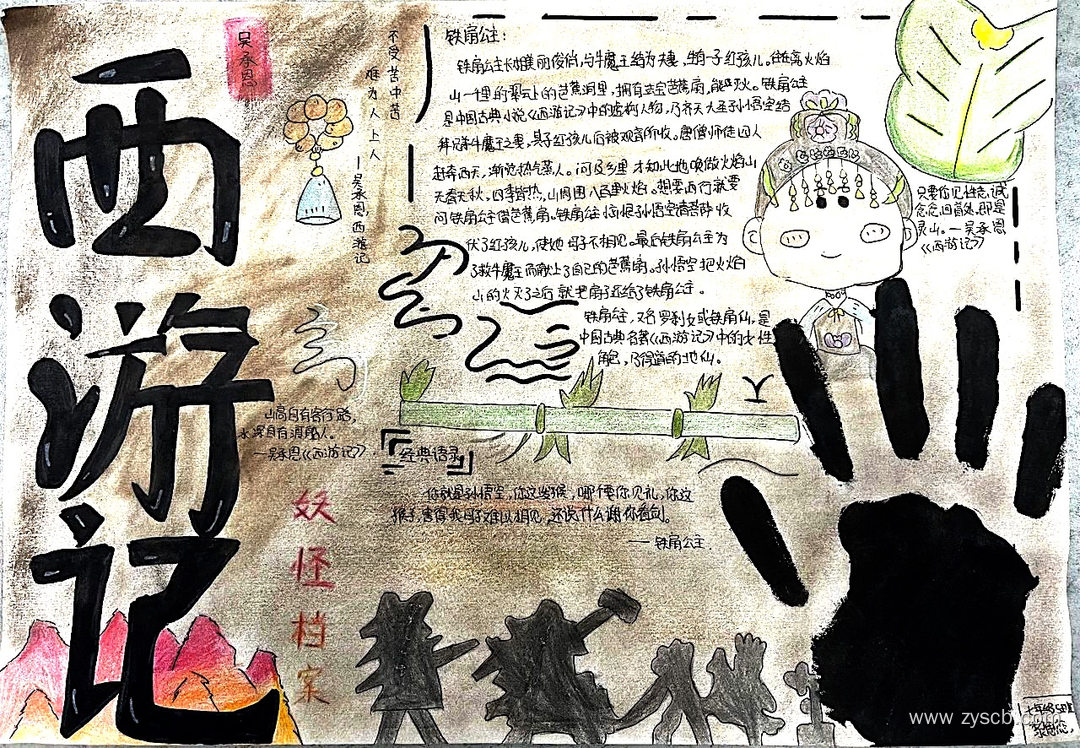 西游记
吴承恩
不受苦中苦
难为人上人
—吴承恩西游记
铁扇公主:
铁扇公主长相美丽俊俏,与牛魔王结为夫妻,生有一子红孩儿。住在离火焰
山一里的翠云山的芭蕉洞里,拥有法宝芭蕉扇,能灭火。铁扇公主
是中国古典小说《西游记》中的虚构人物,乃齐天大圣孙悟空结
拜兄弟牛魔王之妻,其子红孩儿后被观音所收。唐僧师徒四人
赶奔西天,渐觉热气蒸人。问及乡里才知此地唤做火焰山
无春无秋,四季皆热,山周围八百里火焰。想要西行就要
问铁扇公主借芭蕉扇。铁扇公主恼恨孙悟空请菩萨收
伏了红孩儿,使她母子不相见。最后铁扇公主为
了救牛魔王而献上了自己的芭蕉扇。孙悟空把火焰
山的火灭了之后就把扇子还给了铁扇公主。
铁扇公主,又名罗刹女或铁扇仙,是
中国古典名著《西游记》中的女性
角色,乃得道的地仙。
只要你见性志诚
念念回首处,即是
灵山。—吴承恩
《西游记》
山高自有客行路,
水深自有渡船人。
—吴承恩《西游记》
『经典语录』
你就是孙悟空,你这泼猴,哪个要你见礼,你这
猴子,害得我母子难以相见,还说什么谢你看剑。
——铁扇公主
妖怪档案
www.zyscb.com